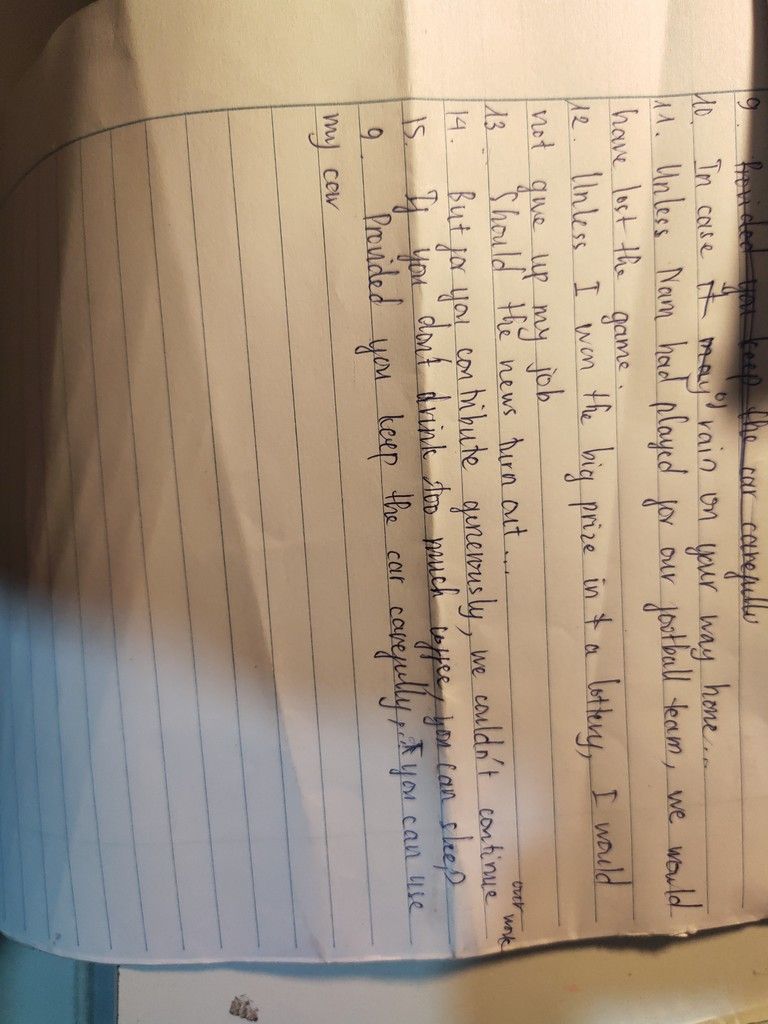 9. Provided you keep the car carefully
10. In case it may rain on your way home...
11. Unless Nam had played for our football team, we would
have lost the game.
12. Unless I won the big prize in a lottery, I would
not give up my job
13. Should the news turn out...
14. But for you contribute generously, we couldn't continue our work
15. If you don't drink too much coffee, you can sleep
9. Provided you keep the car carefully, you can use
my car